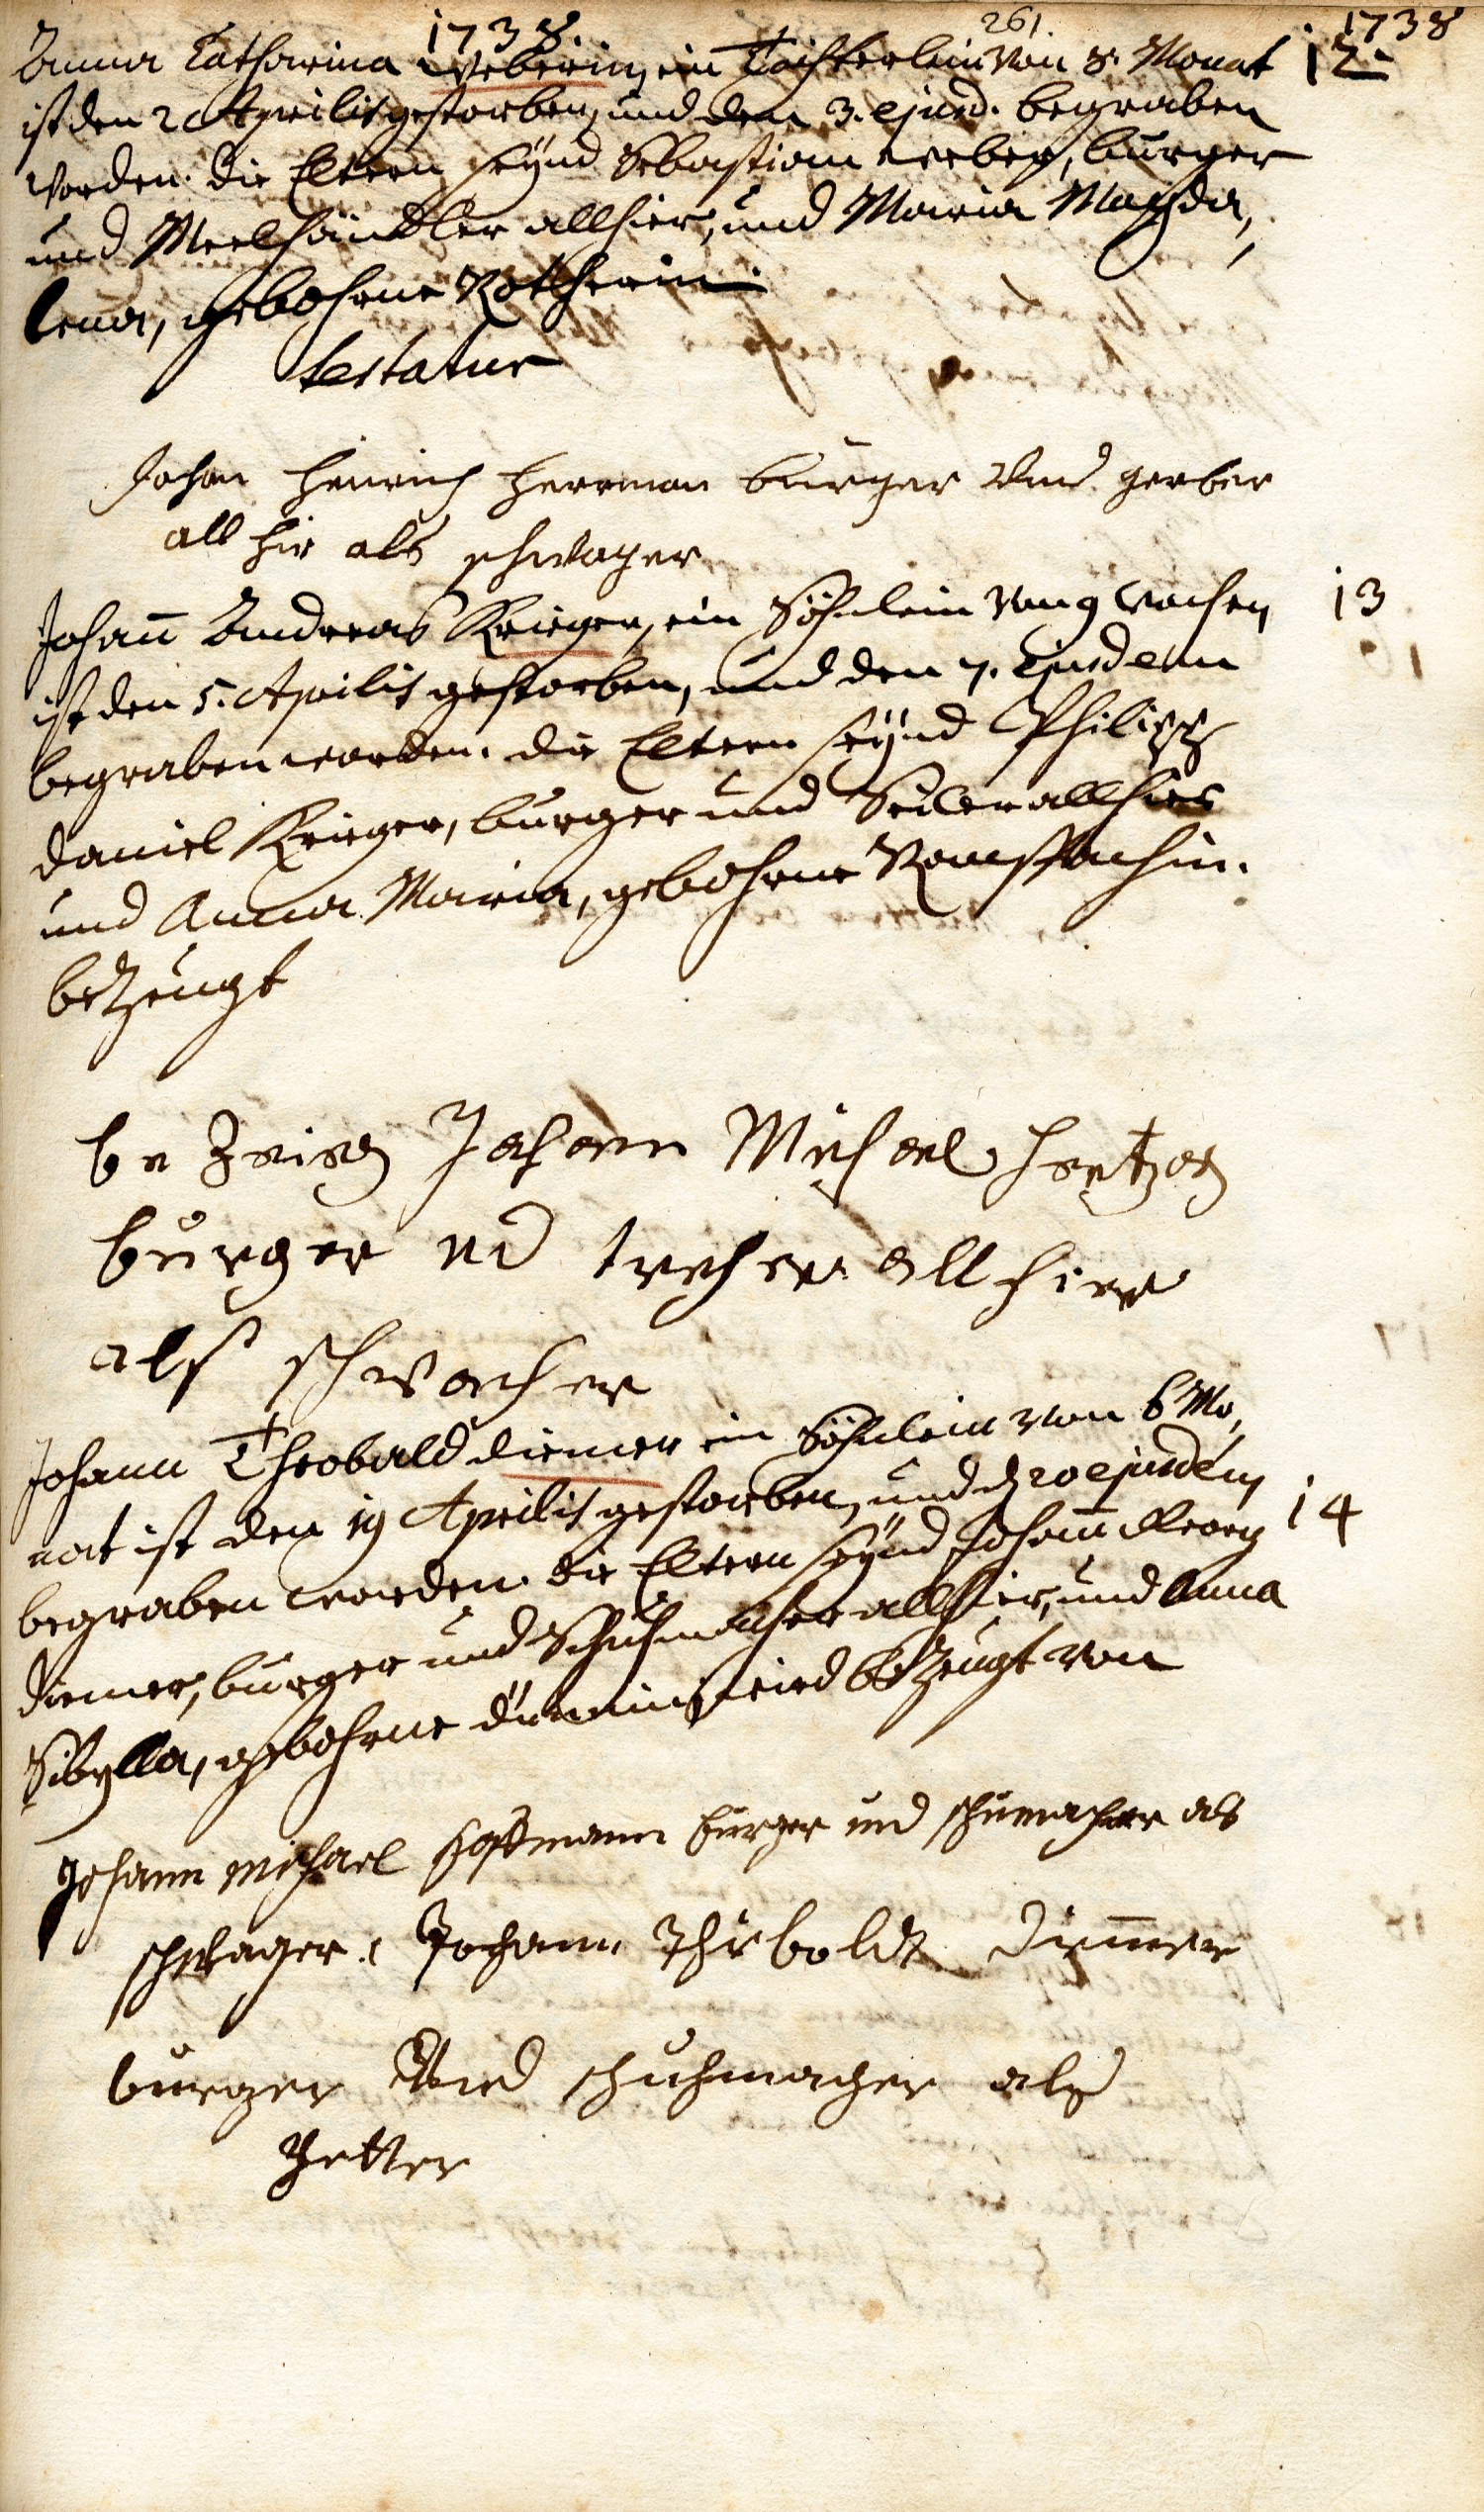 1738. 261. 1738
Anna Catharina Weberin, ein Töchterlein von 8. Monat 12.
ist den 2 Aprilis gestorben, und den 3. ejusd. begraben
worden. die Eltern seynd Sebastian weber, burger
und Meelhändler allhier, und Maria Magda,
lena, gebohrne Rotherin.
testatur
Johan Henrich Herrman burger Und gerber
all hir als schwager
Johann Andreas Krieger, ein Söhnlein von 9 wochen 13
ist den 5. Aprilis gestorben, und den 7. Ejusdem
begraben worden. die Eltern seynd Philipp
Daniel Krieger, burger und Seiler allhier
und Anna Maria, gebohrne
bezeugt
be Zeigt Johann Michael Hertzog
burger ud treher all hier
alß schwacher
Johann Theobald diemer ein Söhnlein von 6 Mo,
nat ist den 19 Aprilis gestorben, und d 20 ejusdem 14
begraben worden. die Eltern seynd Johann Georg
diemer, burger und Schuhmacher allhier, und Anna
Sibylla, gebohrne wird bezeugt von
Johann Michael Hoffmann burger und schumacher als
schwager. Johann Thiboldt Diemer
burger Und schuhmacher als
Vetter